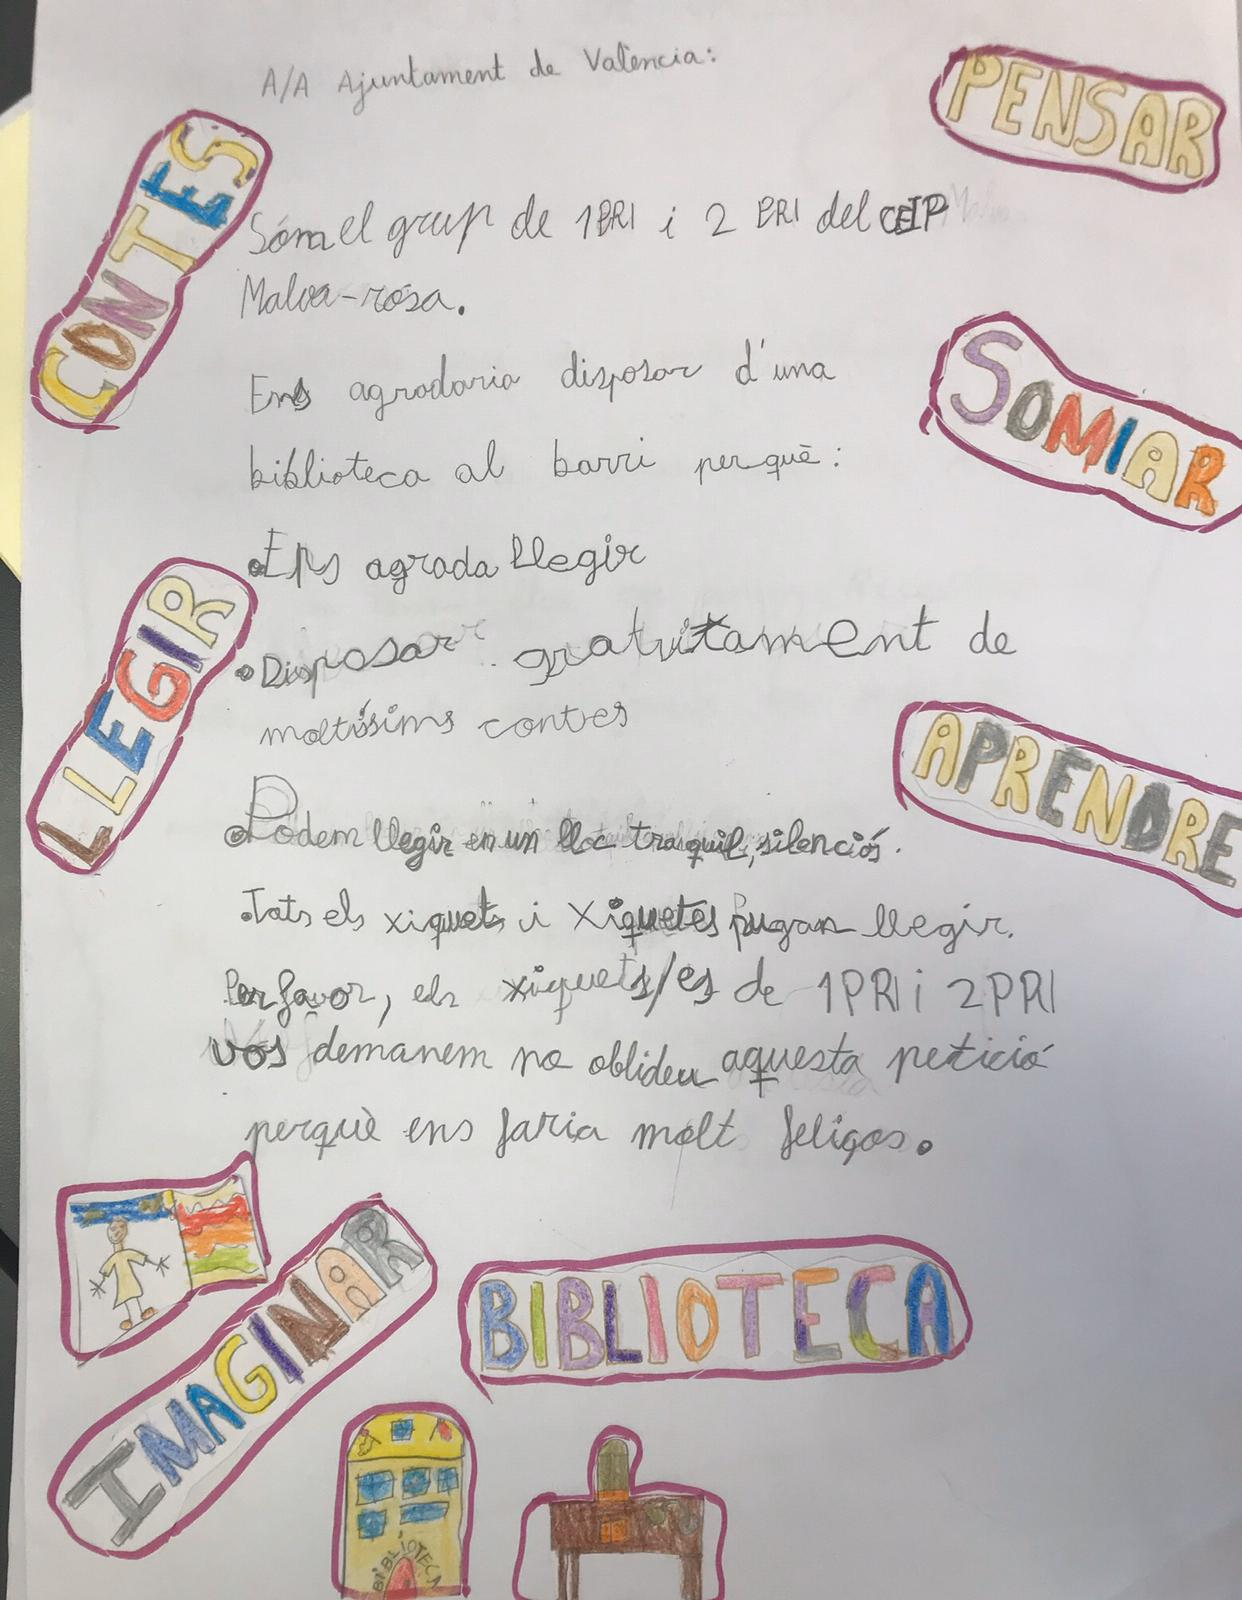 A/A Ajuntament de València:
PENSAR
CONTES
Sóm el grup de 1PRI i 2 PRI del CEIP
Malva-rosa.
SOMIAR
Ens agradaria disposar d'una
biblioteca al barri perquè:
• Ens agrada llegir
LLEGIR
• Disposar gratuitament de
moltísims contes
APRENDRE
• Podem llegir en un lloc tranquil, silenciós.
• Tots els xiquets i xiquetes pugan llegir.
Per favor, els xiquets/es de 1PRI i 2PRI
vos demanem no oblideu aquesta petició
perquè ens faria molt feliços.
IMAGINAR
BIBLIOTECA
BIBLIOTECA